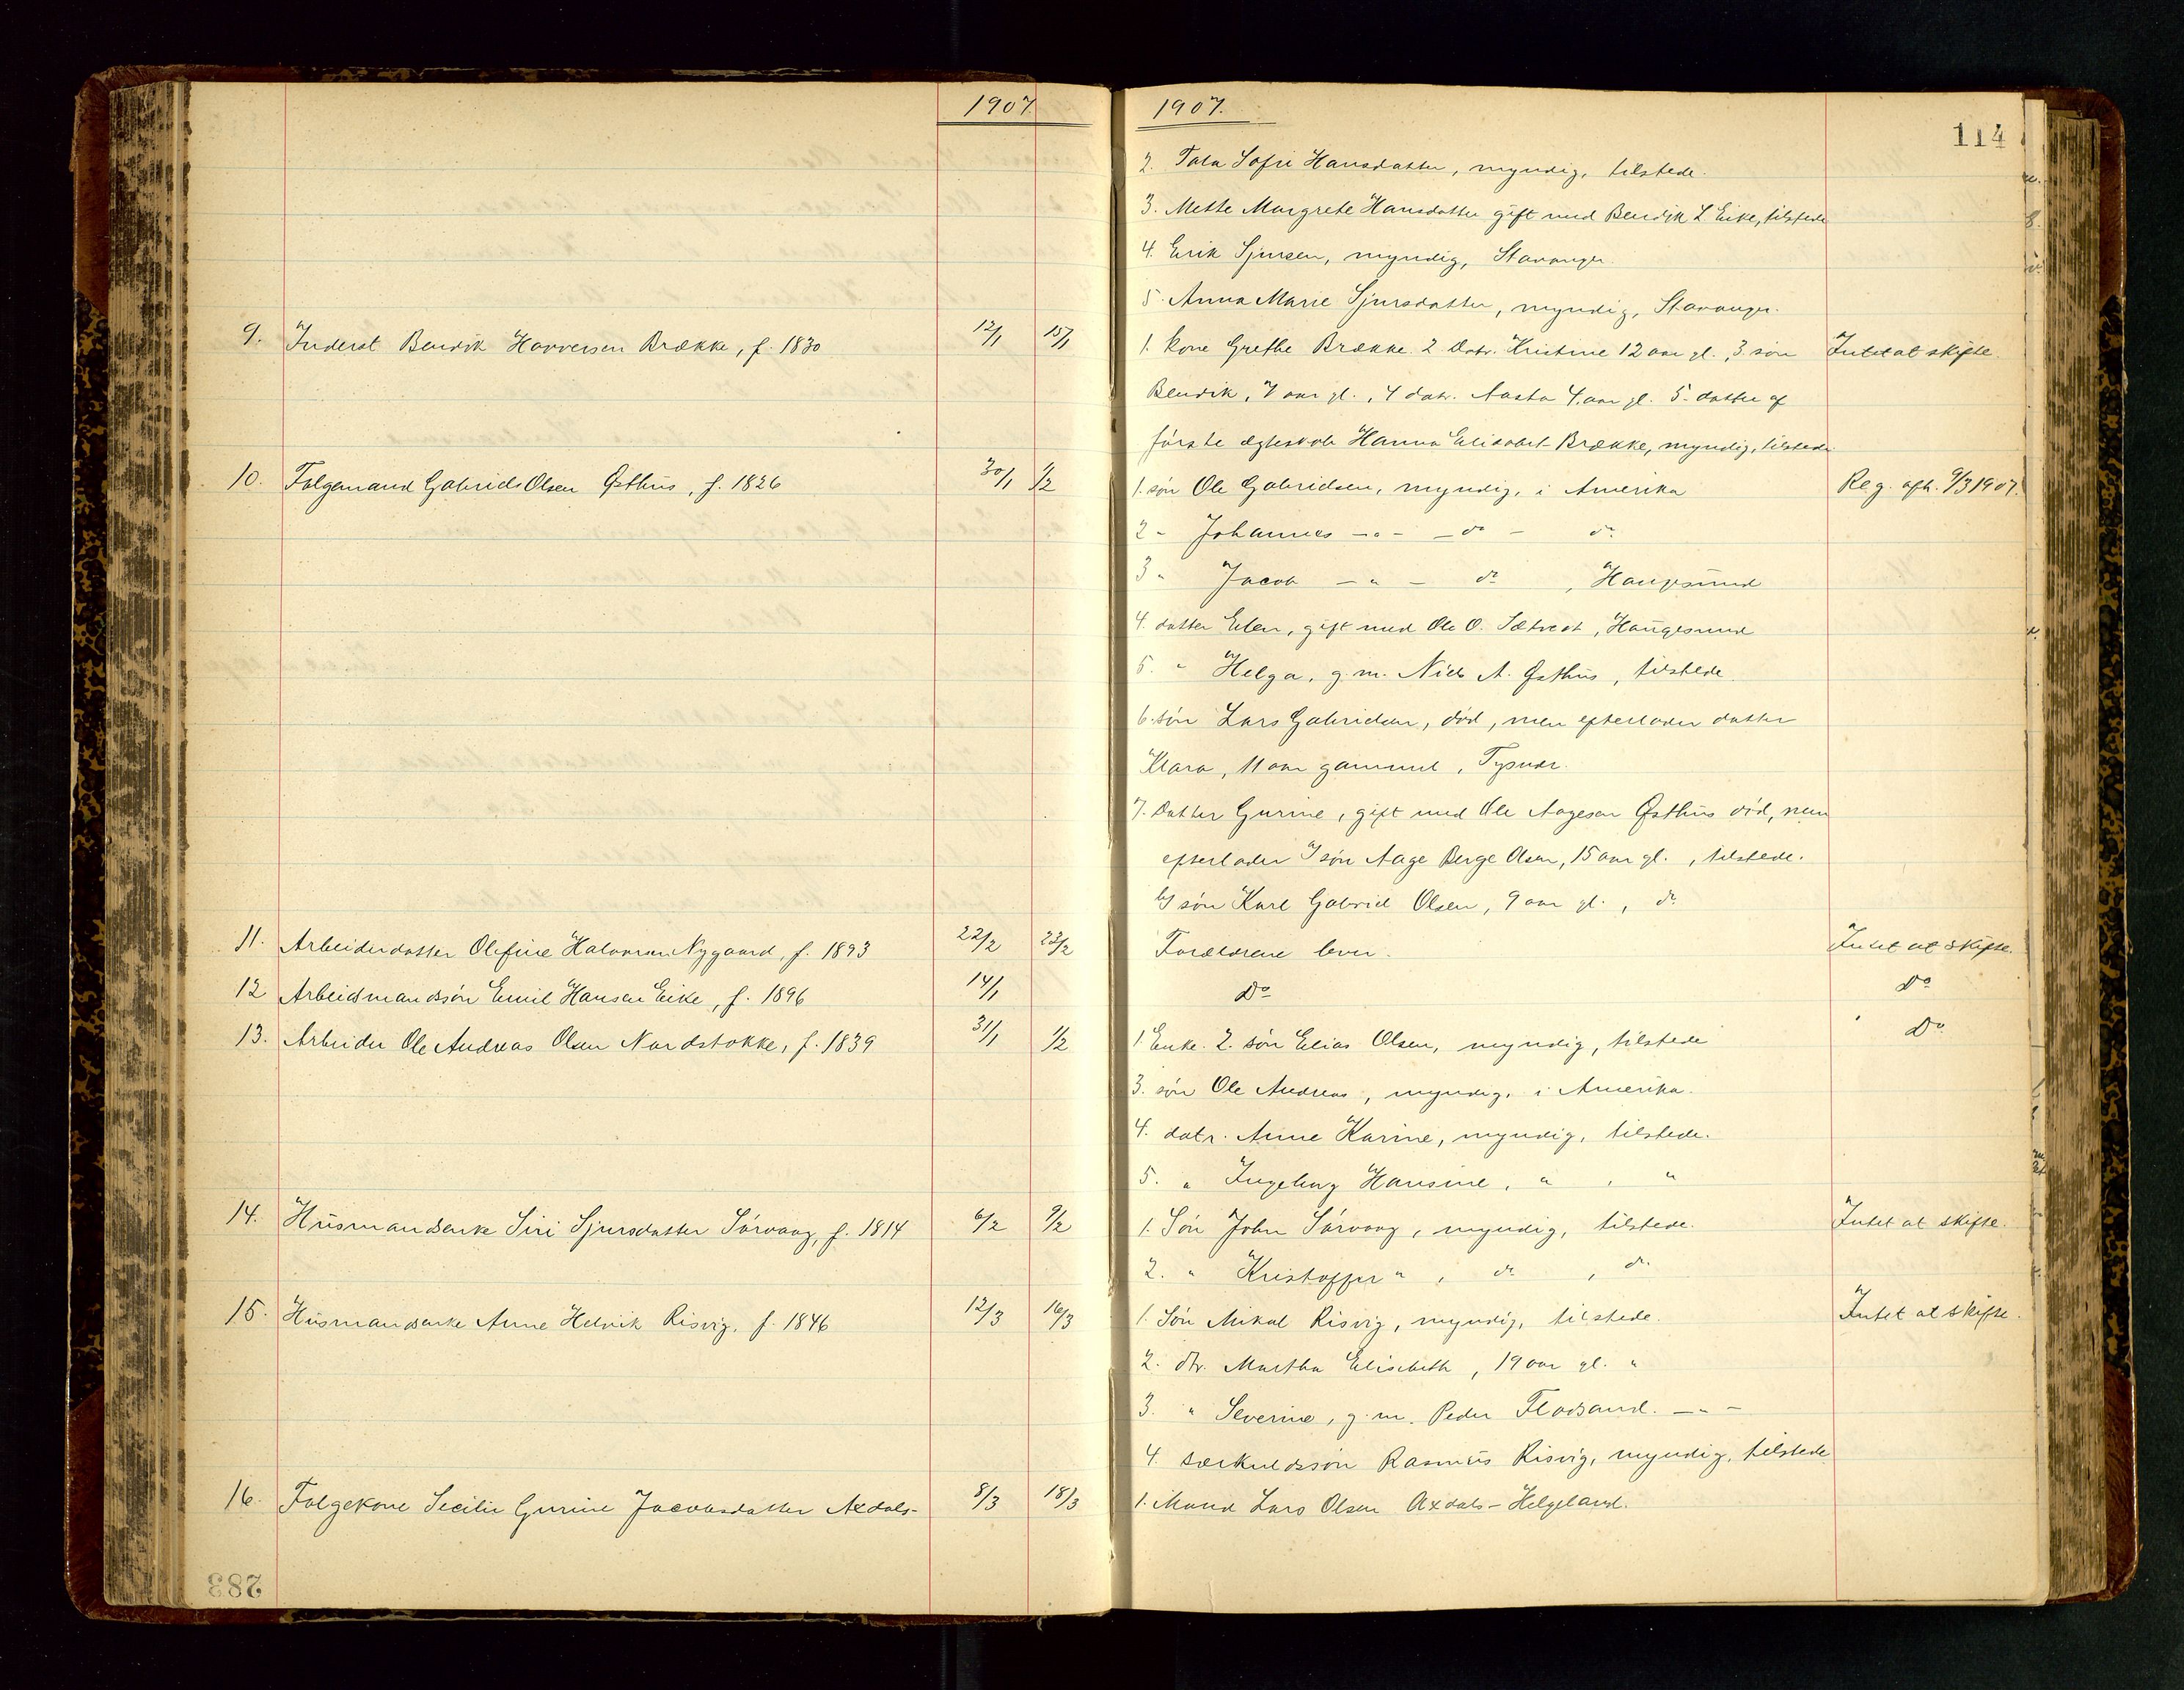 1907.
9. Inderst Bendik Haaversen Brække, f. 1830 12/1 15/1
10. Folgemand Gabriel Olsen Østhus, f. 1826 30/1 1/2
11. Arbeiderdatter Olefine Halvorsen Nygaard, f. 1893 22/2 23/2
12 Arbeidsmandssøn Emil Hansen Eike, f. 1896 14/1
13. Arbeider Ole Andreas Olsen Nordstokke, f. 1839 31/1 1/2
14. Husmandsenke Siri Sjursdatter Sørvaag, f. 1814 6/2 9/2
15. Husmandsenke Anne Helvik Risvig, f. 1846 12/3 16/3
16. Folgekone Secilie Gurine Jacobsdatter Axdals- 8/3 18/3
283
1907.
114
2. Sofie Hansdatter, myndig, tilstede.
3. Mette Margrete Hansdatter gift med Bendik L Eike, tilstede
4. Erik Sjursen, myndig, Stavanger.
5. Anna Marie Sjursdatter, myndig, Stavanger.
1. Kone Grethe Brække. 2 Datr. Kristine 12 aar gl., 3. søn Intet at skifte.
Bendik, 7 aar gl., 4 datr. Aasta 4 aar gl. 5. datter af
første ægteskab Hanna Elisabet Brække, myndig, tilstede.
1. søn Ole Gabrielsen, myndig, i Amerika Reg. afh. 9/3 1907.
2 - Johannes -"- - do - do
3 " Jacob - " - do, Haugesund
4. datter Elen, gift med Ole O. Sætvedt, Haugesund
5. " Helga, g. m. Niels A. Østhus, tilstede.
6. søn Lars Gabrielsen, død, men efterlader datter
Klara, 11 aar gammel, Tysvær.
7. Datter Gurine, gift med Ole Aagesen Østhus død, men
efterlader a) søn Aage Berge Olsen, 15 aar gl., tilstede.
b) søn Karl Gabriel Olsen, 9 aar gl., do
Forældrene lever. Intet at skifte.
Do Do
1 Enke. 2. søn Elias Olsen, myndig, tilstede Do
3. søn Ole Andreas, myndig, i Amerika.
4. datr. Anne Karine, myndig, tilstede.
5. " Ingeborg Hansine, " , "
1. Søn John Sørvaag, myndig, tilstede. Intet at skifte.
2. " Kristoffer " , do , do
1. Søn Mikal Risvig, myndig, tilstede. Intet at skifte.
2. dtr. Martha Elisebeth, 19 aar gl. "
3. " Severine, g. m. Peder Flodsand. -"-
4. særkuldssøn Rasmus Risvig, myndig, tilstede
1. Mand Lars Olsen Axdals-Helgeland.